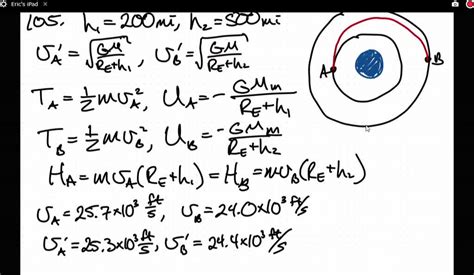 Eric's iPad
105. h₁=200mi, h₂=500mi
v_A' = √(GM/(R_E+h₁)), v_B' = √(GM/(R_E+h₂))
T_A = ½mv_A², U_A = -GMm/(R_E+h₁)
A B
T_B = ½mv_B², U_B = -GMm/(R_E+h₂)
H_A = mv_A(R_E+h₁) = H_B = mv_B(R_E+h₂)
v_A = 25.7×10³ ft/s, v_B = 24.0×10³ ft/s
v_A' = 25.3×10³ ft/s, v_B' = 24.4×10³ ft/s